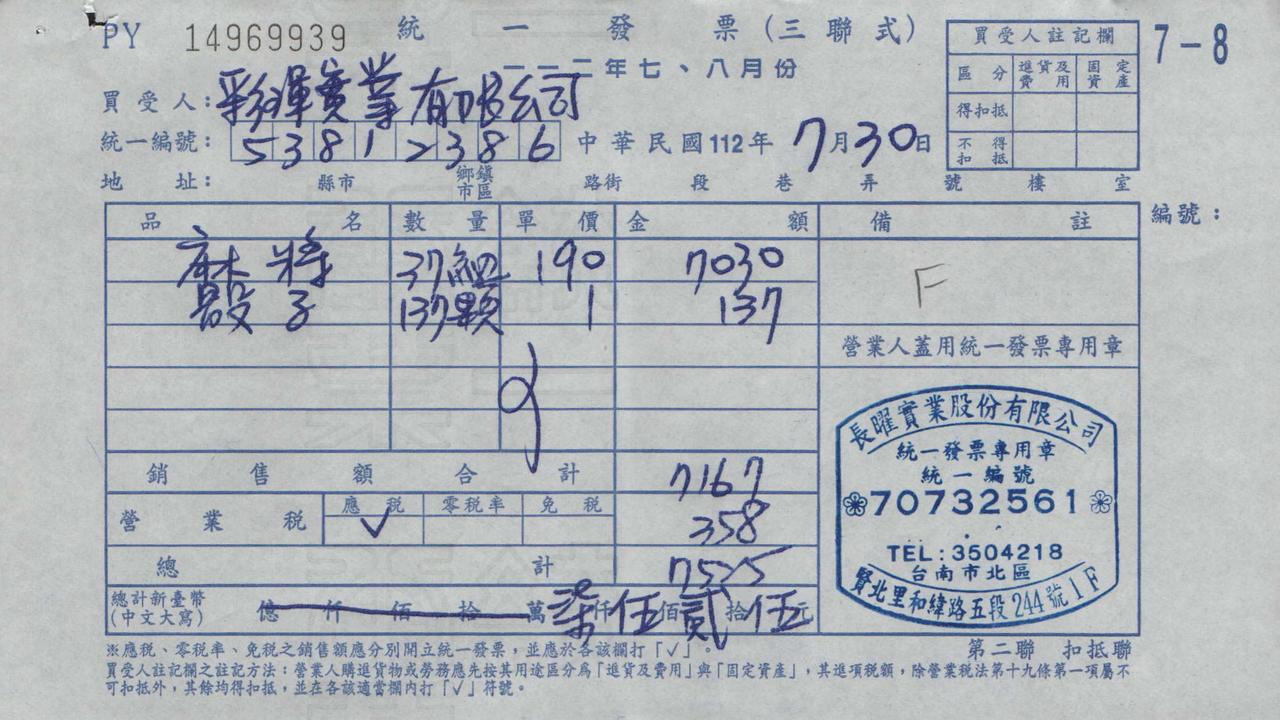 PY 14969939 統一發票(三聯式) 7-8
一一二年七、八月份
買受人: 彩琿實業有限公司
統一編號: 53812386 中華民國112年 7月30日
地址: 縣市 鄉鎮市區 路街 段 巷 弄 號 樓 室
買受人註記欄
區分 進貨及費用 固定資產
得扣抵
不得扣抵
品名 數量 單價 金額 備註 編號:
麻將 37組 190 7030 F
骰子 137顆 1 137
營業人蓋用統一發票專用章
銷售額合計 7167
營業稅 應稅 ✓ 零稅率 免稅 358
總計 7525
總計新臺幣(中文大寫) 億仟佰拾萬柒仟伍佰貳拾伍元
長曜實業股份有限公司
統一發票專用章
統一編號
70732561
TEL:3504218
台南市北區
賢北里和緯路五段244號1F
※應稅、零稅率、免稅之銷售額應分別開立統一發票,並應於各該欄打「✓」。 第二聯 扣抵聯
買受人註記欄之註記方法:營業人購進貨物或勞務應先按其用途區分為「進貨及費用」與「固定資產」,其進項稅額,除營業稅法第十九條第一項屬不
可扣抵外,其餘均得扣抵,並在各該適當欄內打「✓」符號。